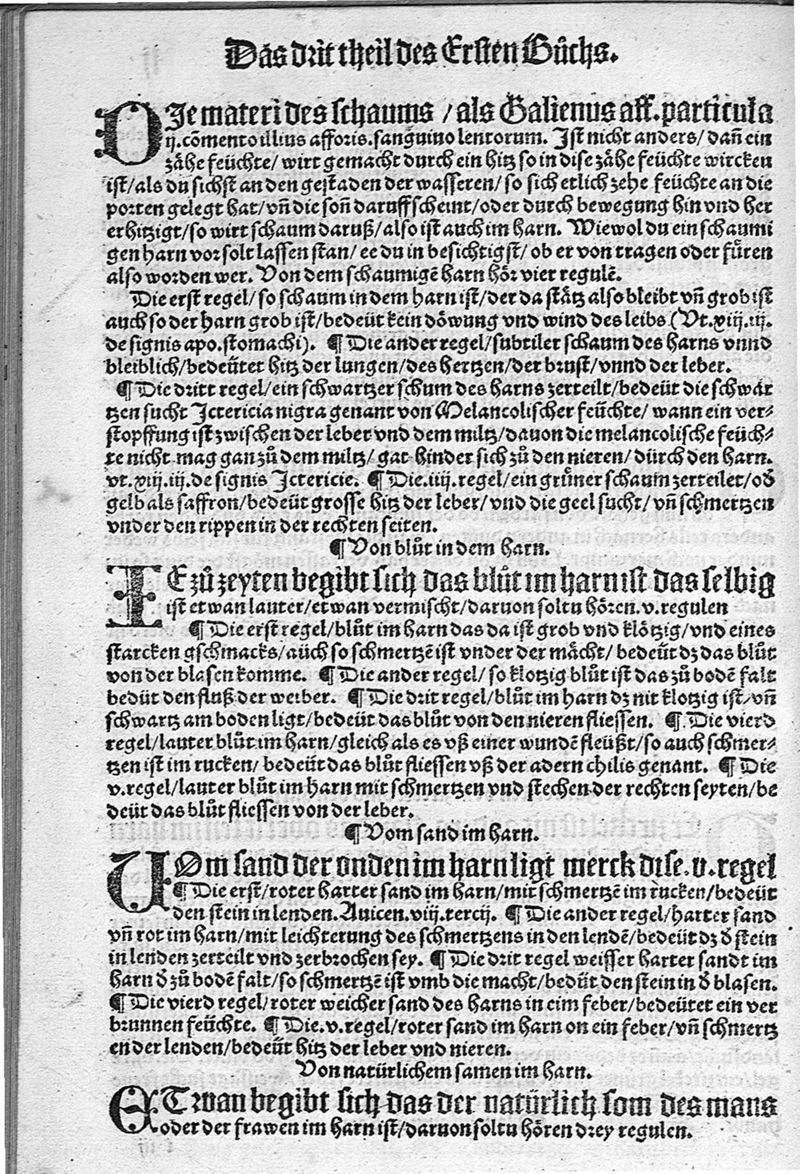 Das drit theil des Ersten Bůchs.
DJe materi des schaums / als Galienus aff. particula
ij. cōmento illius afforis. sanguino lentorum. Jst nicht anders / dañ ein
zåhe feüchte / wirt gemacht durch ein hitz so in dise zåhe feüchte wircken
ist / als du sichst an den gestaden der wasseren / so sich etlich zehe feüchte an die
porten gelegt hat / vñ die soñ daruff scheint / oder durch bewegung hin vnd her
erhitzigt / so wirt schaum daruß / also ist auch im harn. Wiewol du ein schaumi
gen harn vor solt lassen stan / ee du in besichtigst / ob er von tragen oder fůren
also worden wer. Von dem schaumigē harn hôr vier regulē.
Die erst regel / so schaum in dem harn ist / der da ståtz also bleibt vñ grob ist
auch so der harn grob ist / bedeüt kein dôwung vnd wind des leibs (Vt. xiij. iij.
de signis apo. stomachi). ¶ Die ander regel / subtiler schaum des harns vnnd
bleiblich / bedeütet hitz der lungen / des hertzen / der brust / vnnd der leber.
¶ Die dritt regel / ein schwartzer schum des harns zerteilt / bedeüt die schwår
tzen sucht Jctericia nigra genant von Melancolischer feüchte / wann ein ver-
stopffung ist zwischen der leber vnd dem miltz / dauon die melancolische feüch-
te nicht mag gan zů dem miltz / gat hinder sich zů den nieren / dürch den harn.
vt. xiij. iij. de signis Jctericie. ¶ Die. iiij. regel / ein grůner schaum zerteilet / od
gelb als saffron / bedeüt grosse hitz der leber / vnd die geel sucht / vñ schmertzen
vnder den rippen in der rechten seiten.
¶ Von blůt in dem harn.
ZE zů zeyten begibt sich das blůt im harn ist das selbig
ist etwan lauter / etwan vermischt / daruon soltu hôren. v. regulen
¶ Die erst regel / blůt im harn das da ist grob vnd klôtzig / vnd eines
starcken gschmacks / aüch so schmertzē ist vnder der måcht / bedeüt dz das blůt
von der blasen komme. ¶ Die ander regel / so klotzig blůt ist das zů bodē falt
bedüt den fluß der weiber. ¶ Die drit regel / blůt im harn dz nit klotzig ist / vñ
schwartz am boden ligt / bedeüt das blůt von den nieren fliessen. ¶ Die vierd
regel / lauter blůt im harn / gleich als es vß einer wundē fleüßt / so auch schmer-
tzen ist im rucken / bedeüt das blůt fliessen vß der adern chilis genant. ¶ Die
v. regel / lauter blůt im harn mit schmertzen vnd stechen der rechten seyten / be
deüt das blůt fliessen von der leber.
¶ Vom sand im harn.
VOm sand der onden im harn ligt merck dise. v. regel
¶ Die erst / roter harter sand im harn / mit schmertzē im rucken / bedeüt
den stein in lenden. Auicen. viij. tercij. ¶ Die ander regel / harter sand
vñ rot im harn / mit leichterung des schmertzens in den lendē / bedeüt dz d stein
in lenden zerteilt vnd zerbrochen sey. ¶ Die drit regel weisser harter sandt im
harn d zů bodē falt / so schmertzē ist vmb die macht / bedüt den stein in d blasen.
¶ Die vierd regel / roter weicher sand des harns in eim feber / bedeütet ein ver
brunnen feüchte. ¶ Die. v. regel / roter sand im harn on ein feber / vñ schmertz
en der lenden / bedeüt hitz der leber vnd nieren.
Von natürlichem samen im harn.
ETwan begibt sich das der natürlich som des mans
oder der frawen im harn ist / daruon soltu hôren drey regulen.